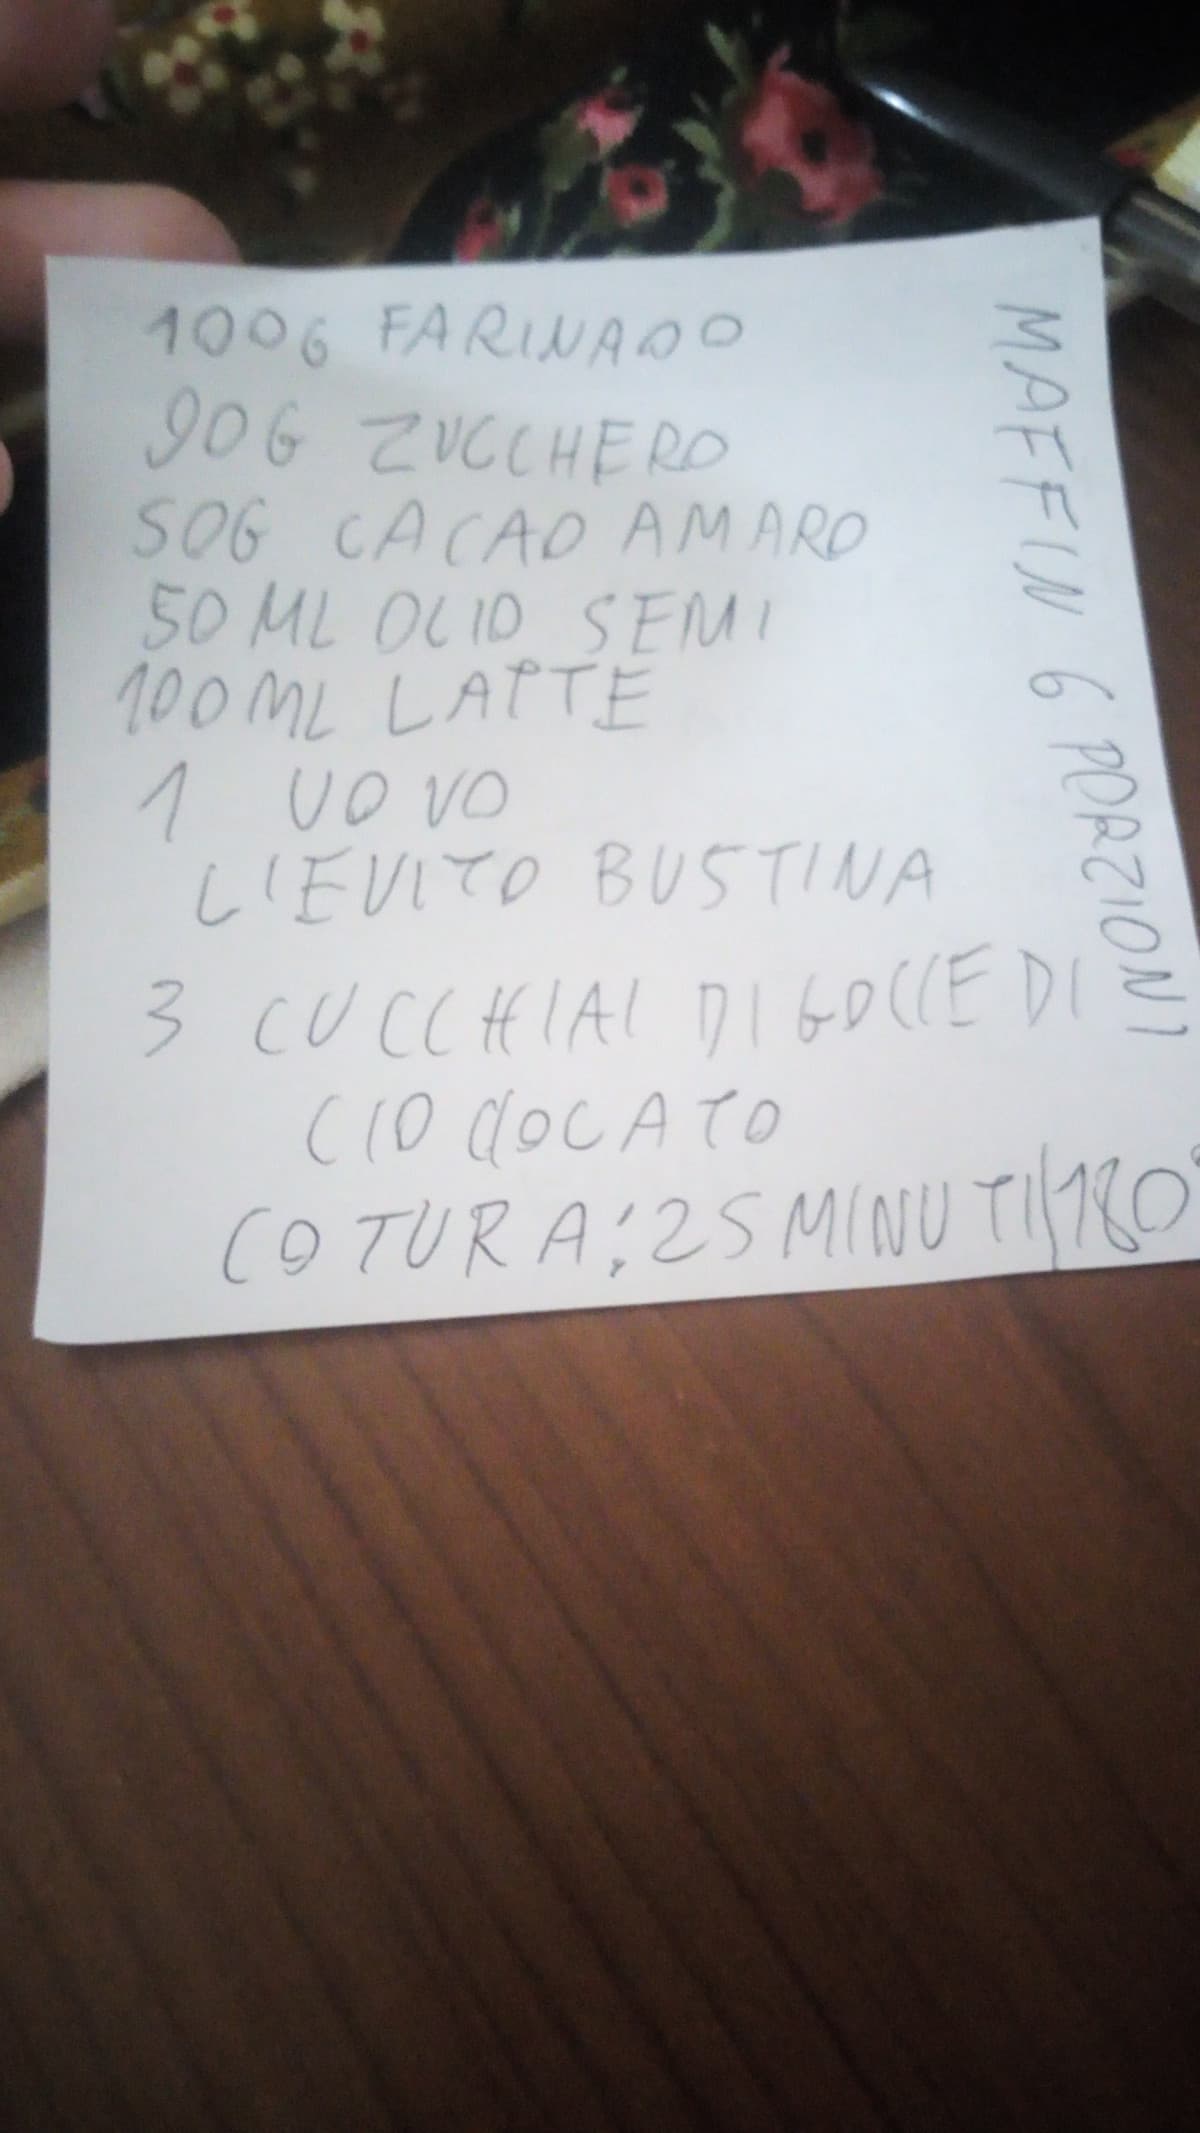 100G FARINA00
90G ZUCCHERO
50G CACAO AMARO
50 ML OLIO SEMI
100 ML LATTE
1 UOVO
LIEVITO BUSTINA
3 CUCCHIAI DI GOCCE DI
CIOCCOCATO
COTURA: 25 MINUTI/180°
MAFFIN 6 PORZIONI